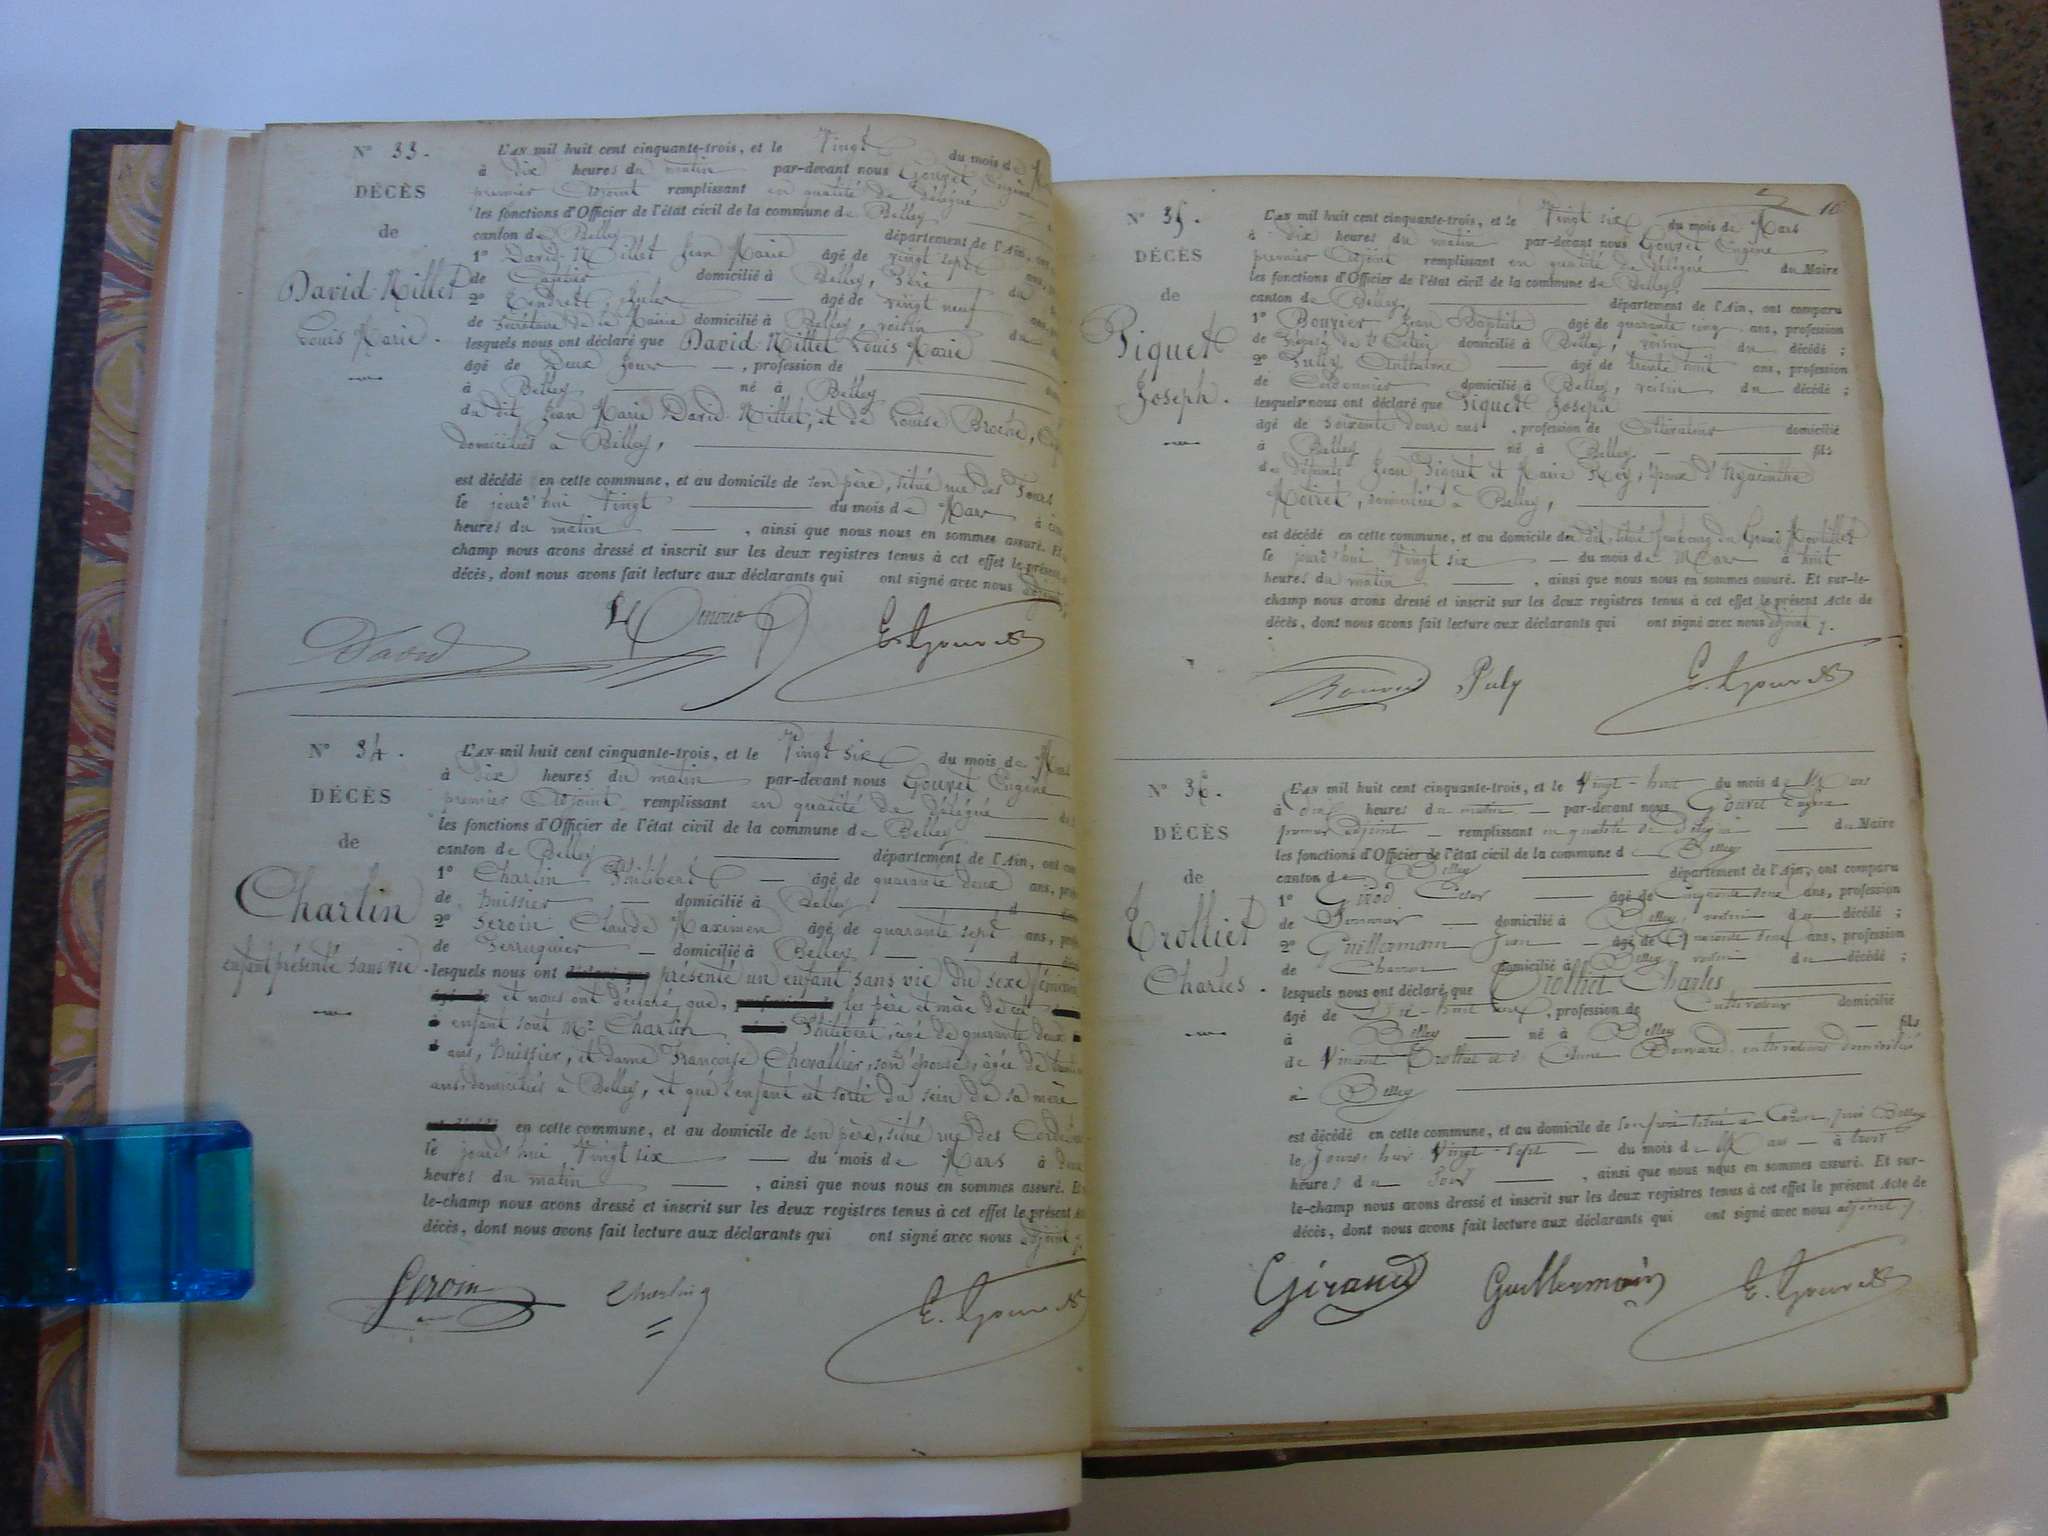 N° 33.
DÉCÈS
de
David-Millet
Louis Marie.
L'AN mil huit cent cinquante-trois, et le Vingt du mois de
à dix heures du matin par-devant nous Gouvet Eugène
premier Adjoint remplissant en qualité de délégué
les fonctions d'Officier de l'état civil de la commune de Belley
canton de Belley département de l'Ain,
1° David-Millet Jean Marie âgé de vingt sept ans,
de domicilié à Belley, Père du
2° Jules âgé de vingt neuf ans,
de Secrétaire de la Mairie domicilié à Belley, voisin du
lesquels nous ont déclaré que David-Millet Louis Marie
âgé de Deux jours, profession de
à Belley né à Belley
du dit Jean Marie David-Millet, et de Louise
domiciliés à Belley,
est décédé en cette commune, et au domicile de son père, situé rue des
le jourd'hui vingt du mois de Mars à
heures du matin, ainsi que nous nous en sommes assuré. Et
champ nous avons dressé et inscrit sur les deux registres tenus à cet effet le présent
décès, dont nous avons fait lecture aux déclarants qui ont signé avec nous adjoint
David
E. Gouvet
N° 34.
DÉCÈS
de
Charlin
enfant présenté sans vie.
L'AN mil huit cent cinquante-trois, et le Vingt six du mois de
à dix heures du matin par-devant nous Gouvet Eugène
premier Adjoint remplissant en qualité de délégué
les fonctions d'Officier de l'état civil de la commune de Belley
canton de Belley département de l'Ain, ont
1° Charlin Philibert âgé de quarante deux ans,
de huissier domicilié à Belley
2° Feroin Claude Maximen âgé de quarante sept ans,
de Perruquier domicilié à Belley
lesquels nous ont présenté un enfant sans vie du sexe féminin
et nous ont déclaré que, les père et mère de cet
enfant sont Mr Charlin Philibert, âgé de quarante deux
ans, huissier, et dame Françoise Chevallier, son épouse, âgée de
ans, domiciliés à Belley, et que l'enfant est sorti du sein de sa mère
en cette commune, et au domicile de son père, situé rue des
le jourd'hui vingt six du mois de Mars à
heures du matin, ainsi que nous nous en sommes assuré.
le-champ nous avons dressé et inscrit sur les deux registres tenus à cet effet le présent
décès, dont nous avons fait lecture aux déclarants qui ont signé avec nous adjoint
Feroin Charlin E. Gouvet
N° 35.
DÉCÈS
de
Piquet
Joseph.
L'AN mil huit cent cinquante-trois, et le Vingt six du mois de Mars
à dix heures du matin par-devant nous Gouvet Eugène
premier Adjoint remplissant en qualité de délégué du Maire
les fonctions d'Officier de l'état civil de la commune de Belley
canton de Belley département de l'Ain, ont comparu
1° Bouvier Jean Baptiste âgé de quarante cinq ans, profession
de domicilié à Belley, voisin du décédé;
2° Anthelme âgé de trente huit ans, profession
de Cordonnier domicilié à Belley, voisin du décédé;
lesquels nous ont déclaré que Piquet Joseph
âgé de soixante douze ans, profession de domicilié
à Belley né à Belley fils
des défunts Jean Piquet et Marie Rey, époux d'Hyacinthe
Moiret, domiciliée à Belley,
est décédé en cette commune, et au domicile du dit, situé faubourg du Grand
le jourd'hui vingt six du mois de Mars à huit
heures du matin, ainsi que nous nous en sommes assuré. Et sur-le-
champ nous avons dressé et inscrit sur les deux registres tenus à cet effet le présent Acte de
décès, dont nous avons fait lecture aux déclarants qui ont signé avec nous adjoint
Puly E. Gouvet
N° 36.
DÉCÈS
de
Trolliet
Charles.
L'AN mil huit cent cinquante-trois, et le Vingt-huit du mois de Mars
à dix heures du matin par-devant nous Gouvet Eugène
premier adjoint remplissant en qualité de délégué du Maire
les fonctions d'Officier de l'état civil de la commune de Belley
canton de Belley département de l'Ain, ont comparu
1° âgé de ans, profession
de domicilié à Belley, voisin du décédé;
2° Guillermain Jean âgé de ans, profession
de Charron domicilié à Belley voisin du décédé;
lesquels nous ont déclaré que Trolliet Charles
âgé de Dix-huit ans, profession de Cultivateur domicilié
à Belley né à Belley fils
de Vincent Trolliet et d' cultivateurs domiciliés
à Belley
est décédé en cette commune, et au domicile de son père situé à
le jourd'hui Vingt-sept du mois de Mars à trois
heures du soir, ainsi que nous nous en sommes assuré. Et sur-
le-champ nous avons dressé et inscrit sur les deux registres tenus à cet effet le présent Acte de
décès, dont nous avons fait lecture aux déclarants qui ont signé avec nous adjoint
Giraud Guillermain E. Gouvet